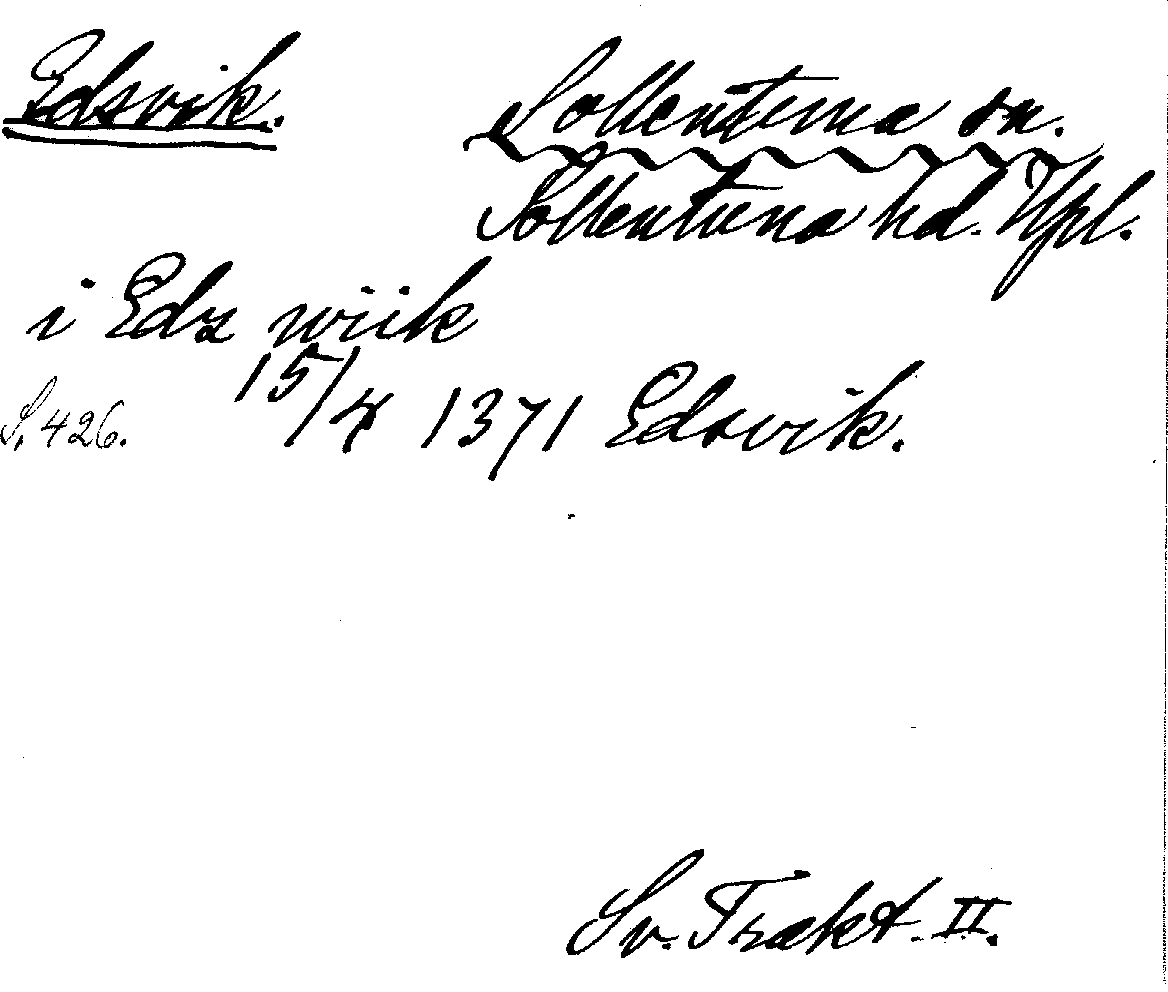 Edsvik.
Sollentuna sn.
Sollentuna hd. Upl.
i Edz wiik
S. 426.
15/4 1371 Edsvik.
Sv. Trakt. II.